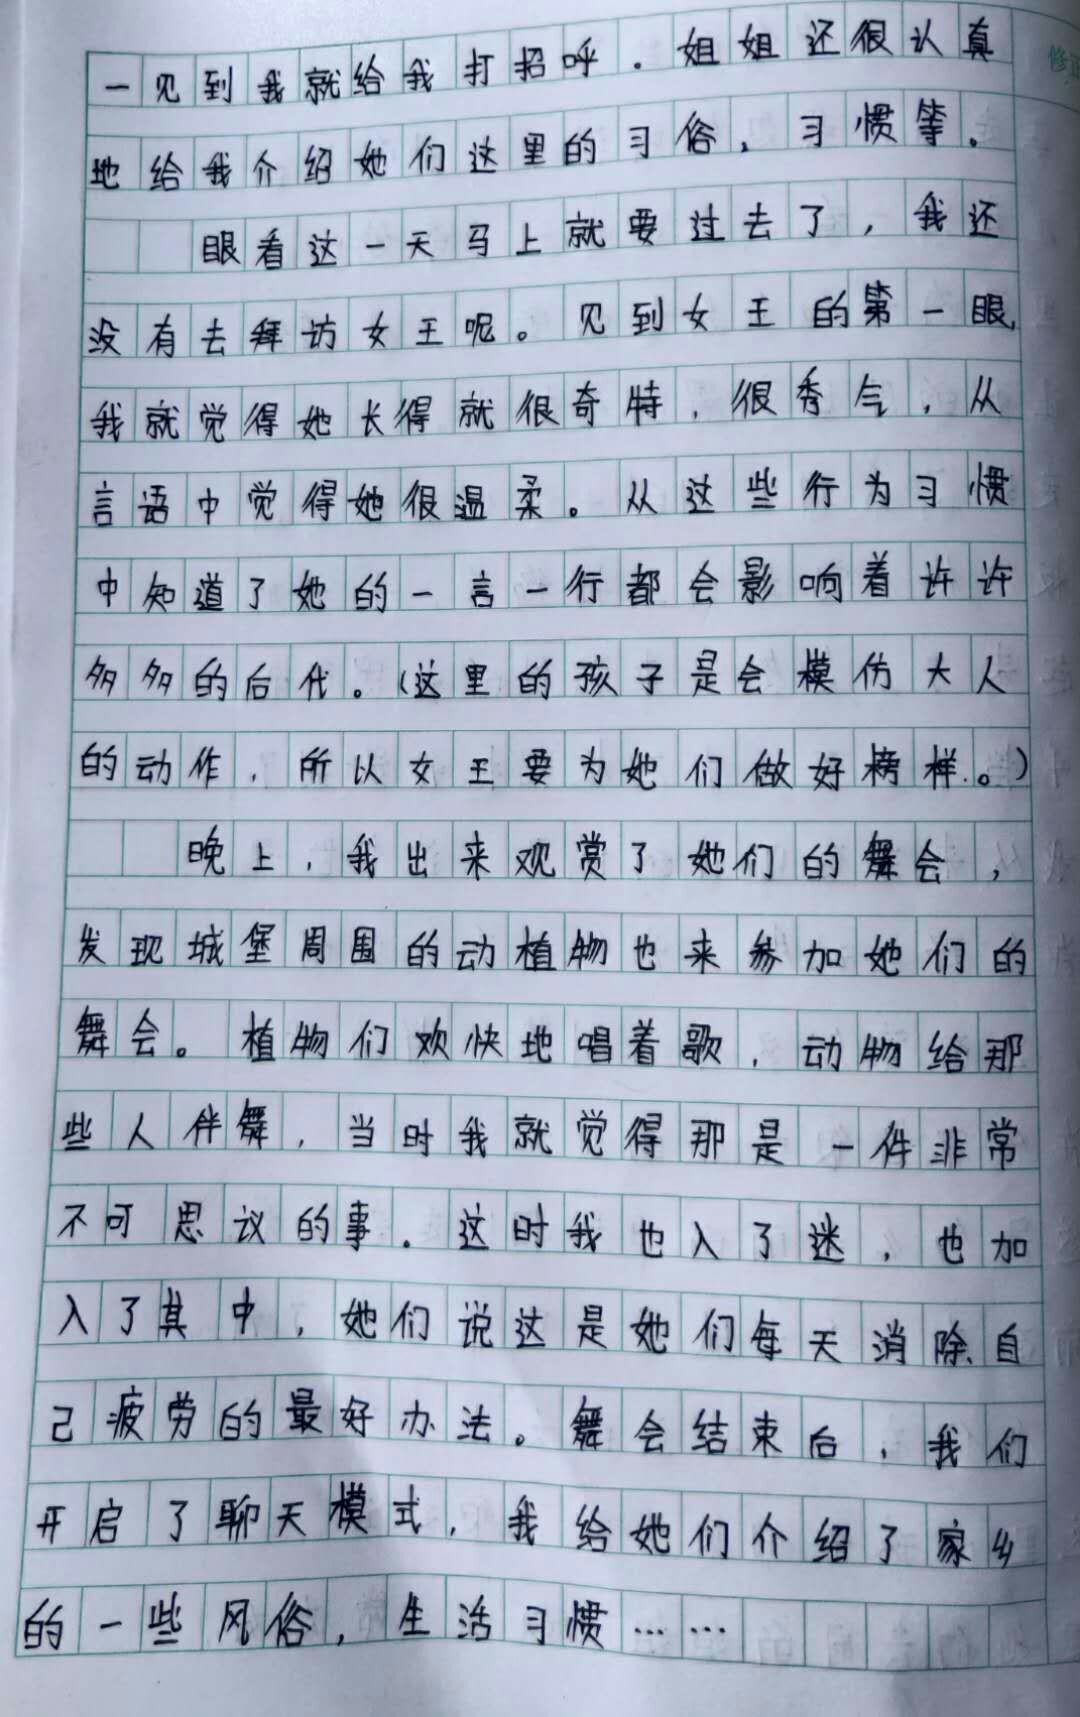 一见到我就给我打招呼．姐姐还很认真
地给我介绍她们这里的习俗，习惯等。
眼看这一天马上就要过去了，我还
没有去拜访女王呢。见到女王的第一眼，
我就觉得她长得就很奇特，很秀气，从
言语中觉得她很温柔。从这些行为习惯
中知道了她的一言一行都会影响着许许
多多的后代。（这里的孩子是会模仿大人
的动作，所以女王要为她们做好榜样。）
晚上，我出来观赏了她们的舞会，
发现城堡周围的动植物也来参加她们的
舞会。植物们欢快地唱着歌，动物给那
些人伴舞，当时我就觉得那是一件非常
不可思议的事．这时我也入了迷，也加
入了其中，她们说这是她们每天消除自
己疲劳的最好办法。舞会结束后，我们
开启了聊天模式，我给她们介绍了家乡
的一些风俗，生活习惯……